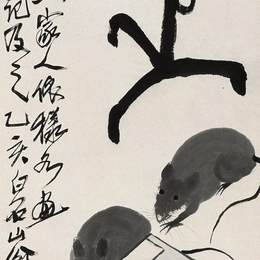 家人依樣各畫
記及之乙亥白石山翁